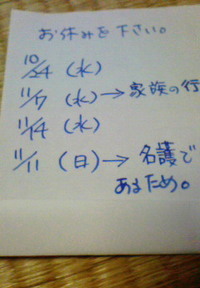 お休みを下さい。
10/24 (水)
11/7 (水) → 家族の行
11/14 (水)
11/11 (日) → 名護で
あるため。